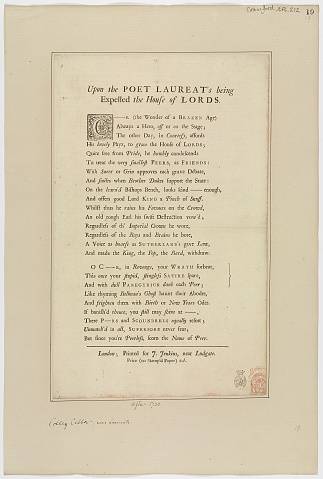 Crawford EB. 212
19
Upon the POET LAUREAT's being
Expelled the House of LORDS.
C——R (the Wonder of a BRAZEN Age)
Always a Hero, off or on the Stage;
The other Day, in Courtesy, affords
His lovely Phyz, to grace the House of LORDS;
Quite free from Pride, he humbly condescends
To treat the very smallest PEERS, as FRIENDS:
With Sneer or Grin approves each grave Debate,
And smiles when Brother Dukes support the State:
On the learn'd Bishops Bench, looks kind —— enough,
And offers good Lord KING a Pinch of Snuff.
Whilst thus he ruins his Fortune on the Crowd,
An old rough Earl his swift Destruction vow'd;
Regardless of th' Imperial Crown he wore,
Regardless of the Bays and Brains he bore,
A Voice as hoarse as SUTHERLAND's gave Law,
And made the King, the Fop, the Bard, withdraw.
O C——R, in Revenge, your WRATH forbear,
This once your stupid, stingless SATIRE spare,
And with dull PANEGYRICK daub each Peer;
Like rhyming Bellman's Ghost haunt their Abodes,
And frighten them with Birth or New Years Odes.
If banish'd thence, you still may shine at ——,
There P—RS and SCOUNDRELS equally resort;
Unmatch'd in all, SUPERIORS never fear,
But since you're Peerless, scorn the Name of Peer.
London; Printed for J. Jenkins, near Ludgate.
Price (on Stamp'd Paper) 2d.
After 1730
Colley Cibber